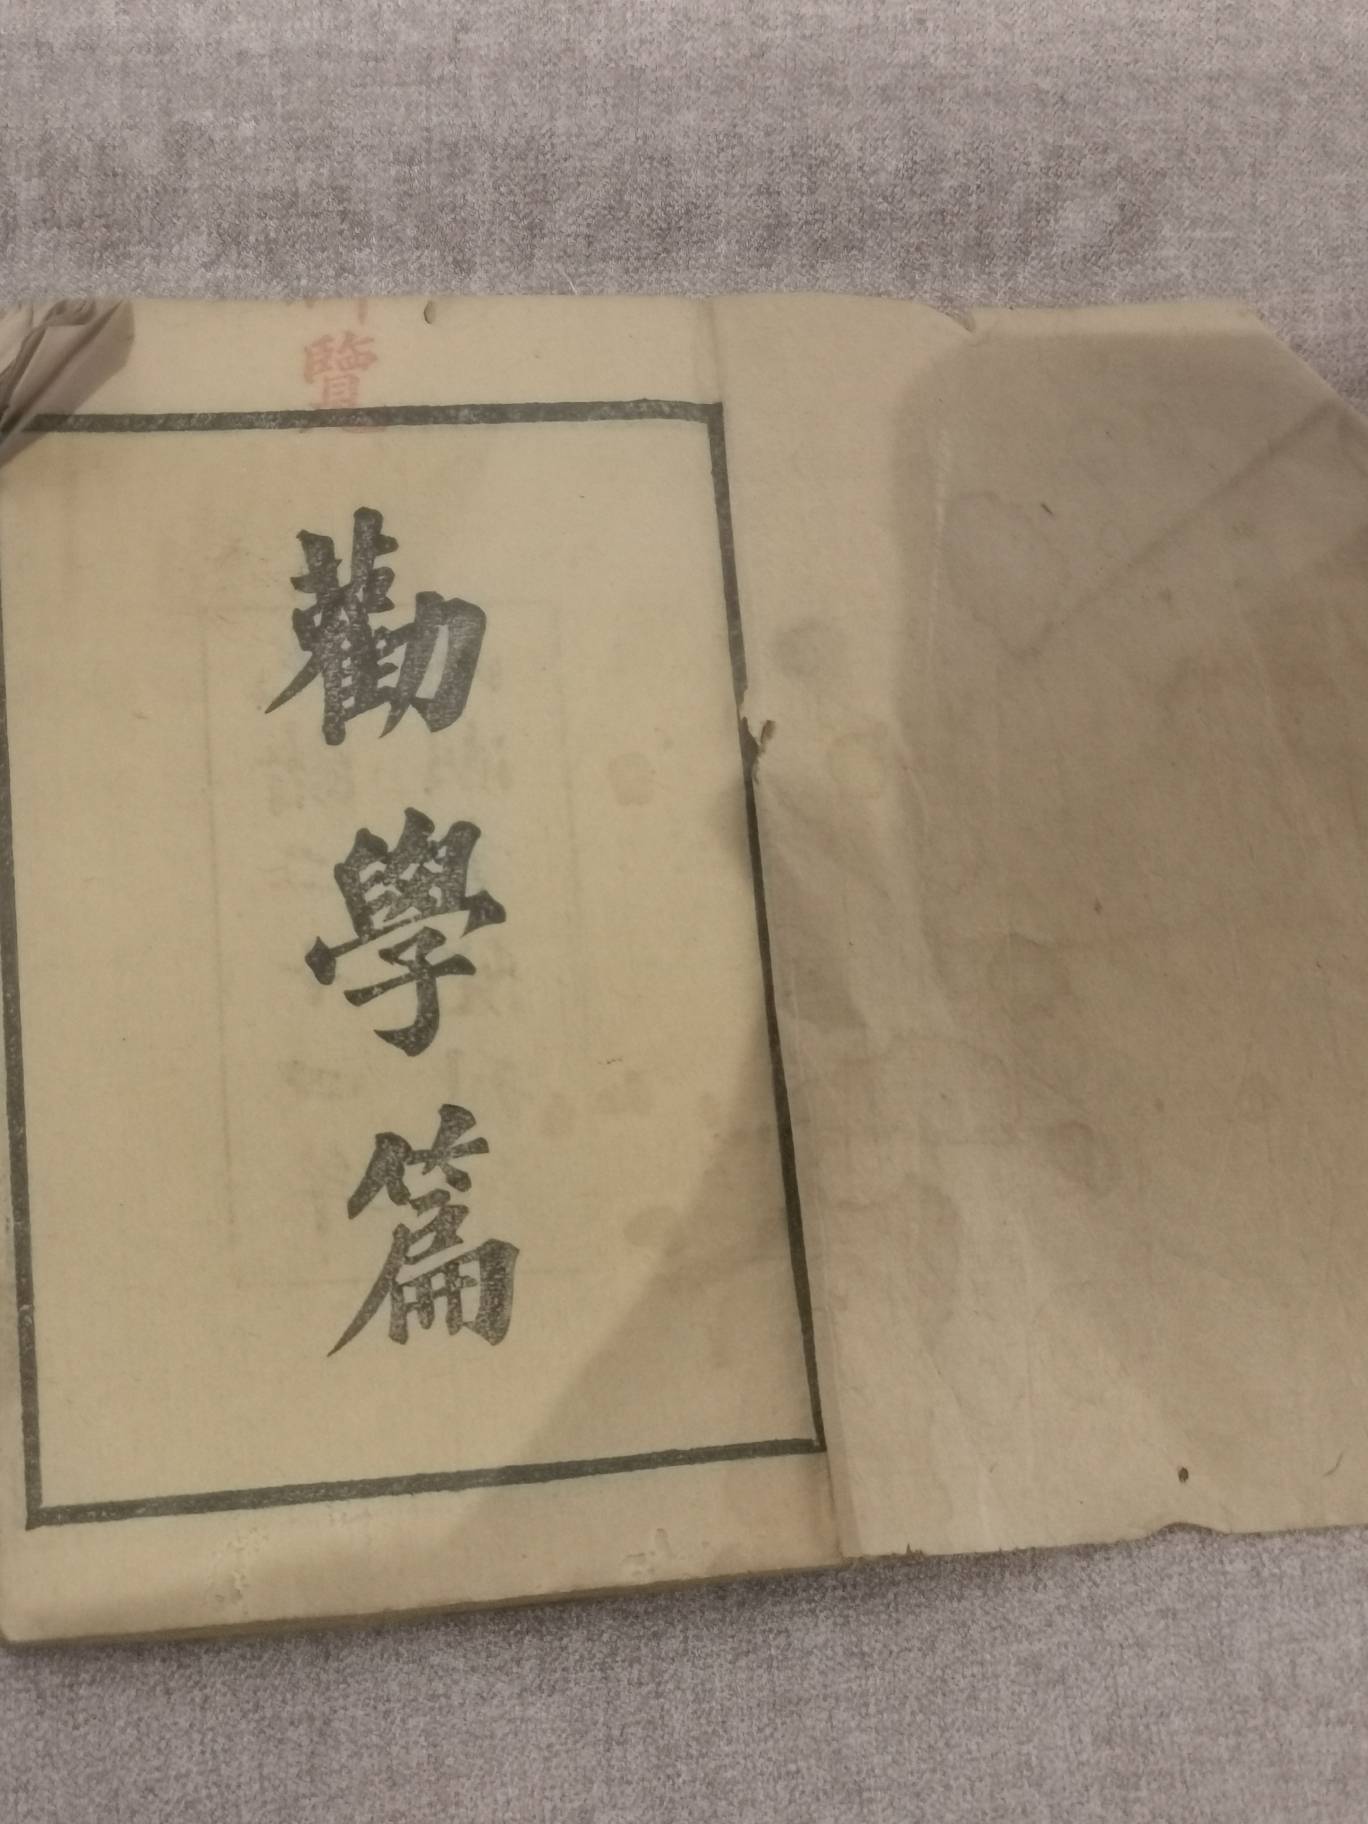 覽
勸學篇